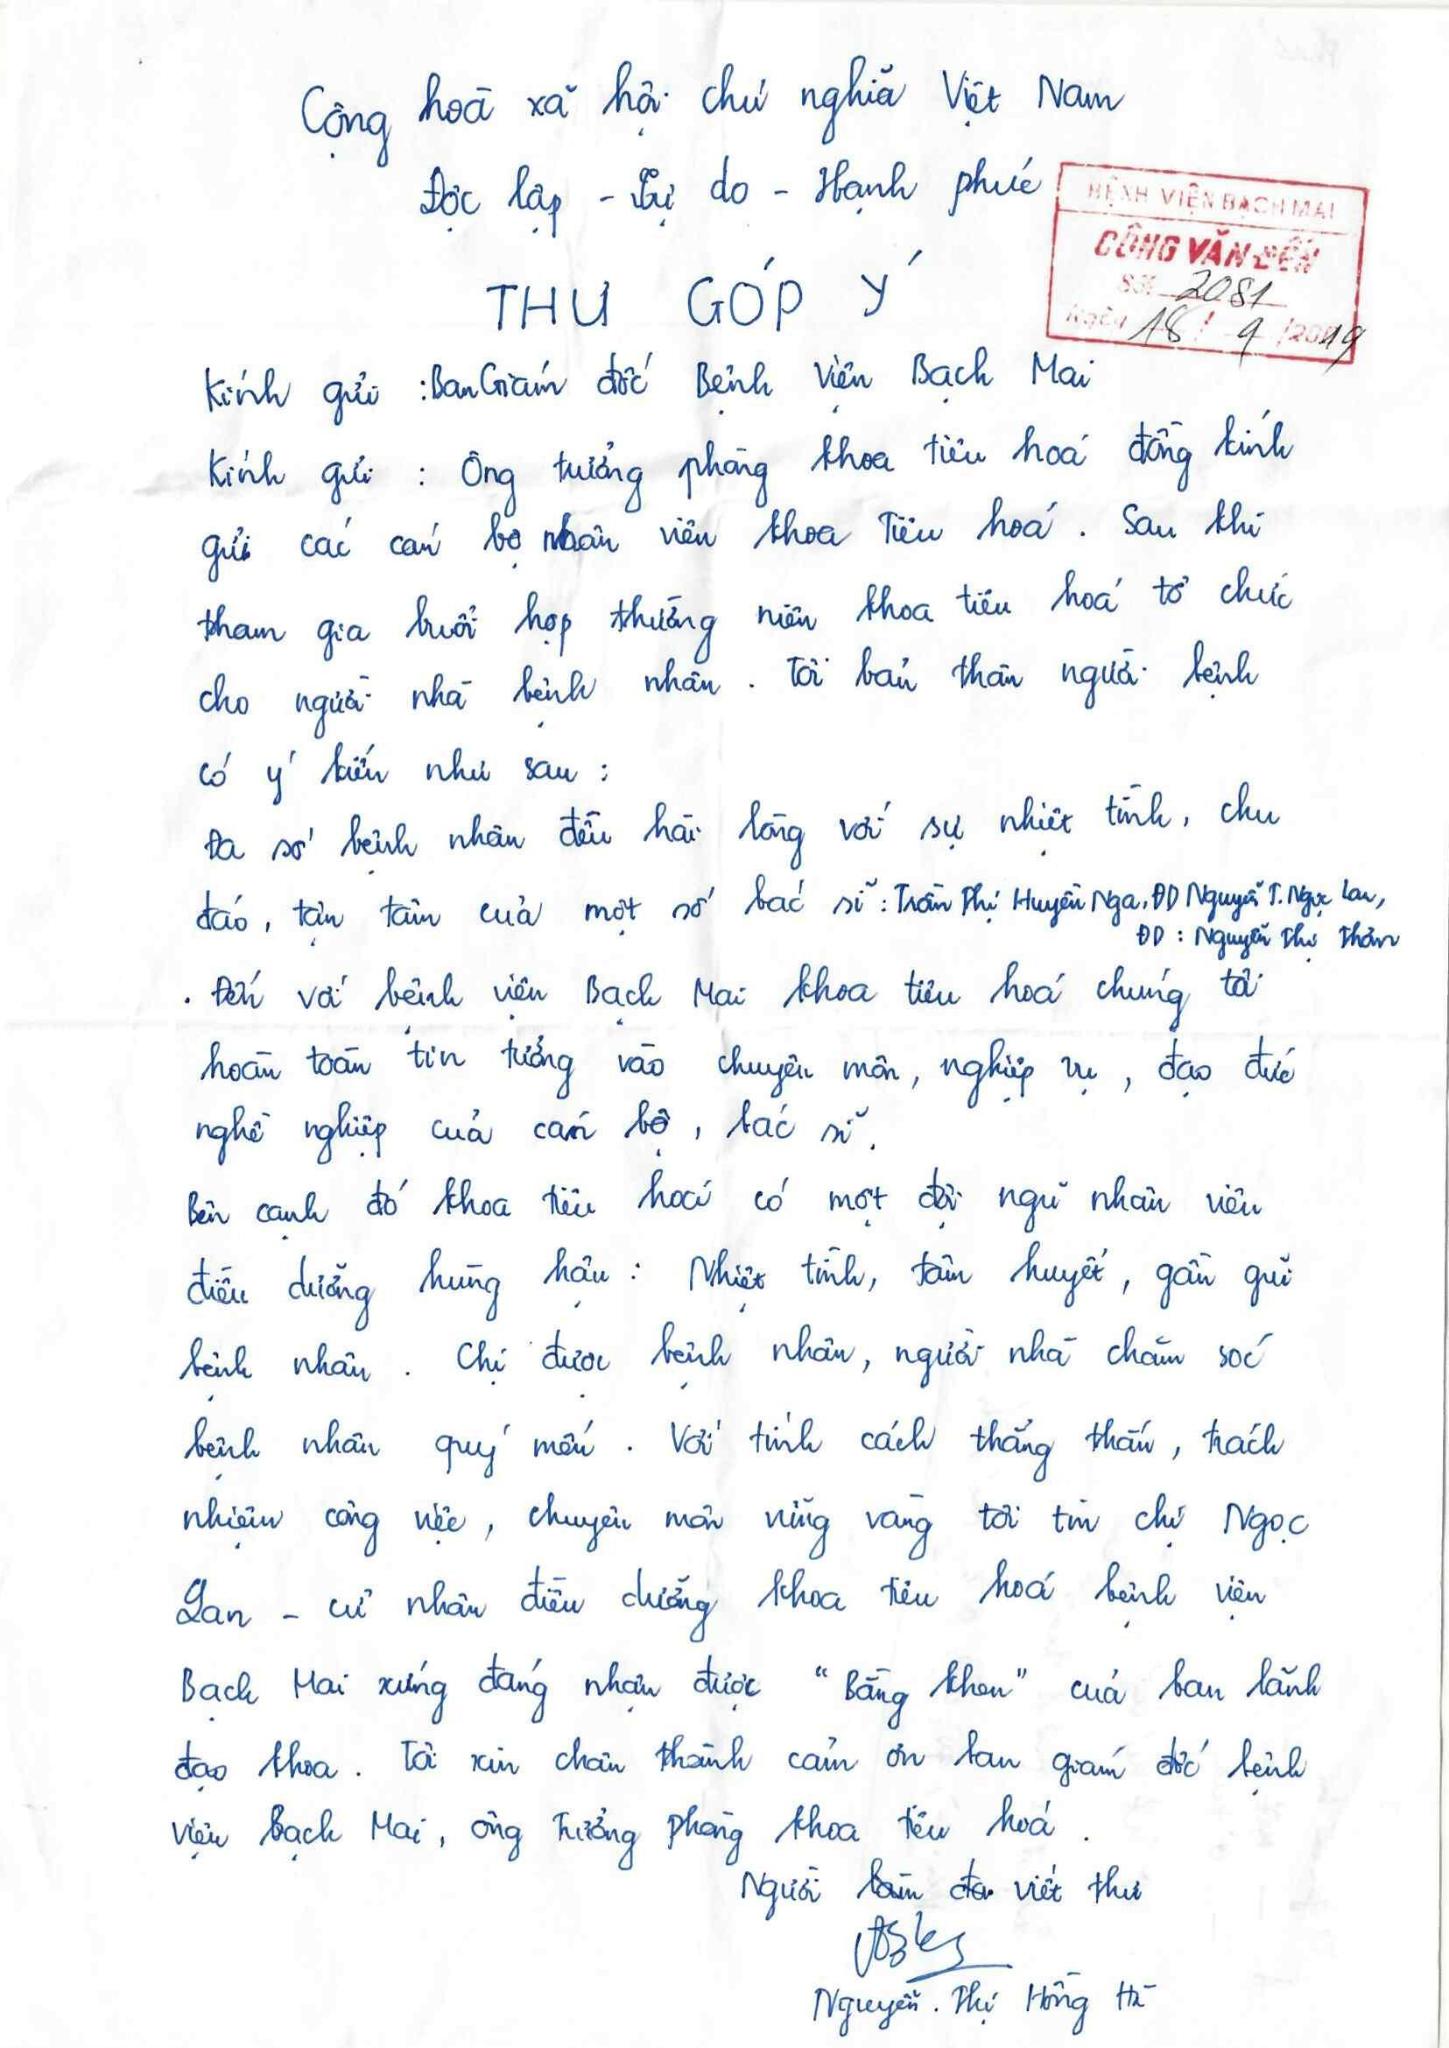 Cộng hoà xã hội chủ nghĩa Việt Nam
Độc lập - Tự do - Hạnh phúc
BỆNH VIỆN BẠCH MAI
CÔNG VĂN ĐẾN
Số: 2081
Ngày 18 / 9 / 2019
THƯ GÓP Ý
Kính gửi : Ban Giám đốc Bệnh viện Bạch Mai
Kính gửi : Ông trưởng phòng khoa tiêu hoá đồng kính
gửi các cán bộ nhân viên khoa Tiêu hoá. Sau khi
tham gia buổi họp thường niên khoa tiêu hoá tổ chức
cho người nhà bệnh nhân. Tôi bản thân người bệnh
có ý kiến như sau :
Đa số bệnh nhân đều hài lòng với sự nhiệt tình, chu
đáo, tận tâm của một số bác sĩ : Trần Thị Huyền Nga, ĐD Nguyễn T. Ngọc Lan,
ĐD : Nguyễn Thị Thắm
. Đến với bệnh viện Bạch Mai khoa tiêu hoá chúng tôi
hoàn toàn tin tưởng vào chuyên môn, nghiệp vụ, đạo đức
nghề nghiệp của cán bộ, bác sĩ.
Bên cạnh đó khoa tiêu hoá có một đội ngũ nhân viên
điều dưỡng hùng hậu : Nhiệt tình, tâm huyết, gần gũi
bệnh nhân. Chị được bệnh nhân, người nhà chăm sóc
bệnh nhân quý mến. Với tính cách thẳng thắn, trách
nhiệm công việc, chuyên môn vững vàng tôi tin chị Ngọc
Lan - cử nhân điều dưỡng khoa tiêu hoá bệnh viện
Bạch Mai xứng đáng nhận được "Bằng khen" của ban lãnh
đạo khoa. Tôi xin chân thành cảm ơn ban giám đốc bệnh
viện Bạch Mai, ông Trưởng phòng khoa tiêu hoá.
Người làm đơ viết thư
Nguyễn. Thị Hồng Hà